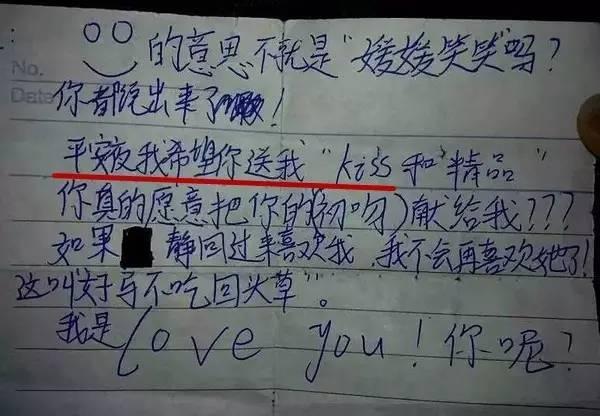 的意思不就是“媛媛笑笑”吗？
No.
Date
你都说出来了！
平安夜我希望你送我“kiss和“精品”
你真的愿意把你的(初吻)献给我???
如果 静回过来喜欢我，我不会再喜欢她了!
这叫“好马不吃回头草”。
我是love you！你呢？